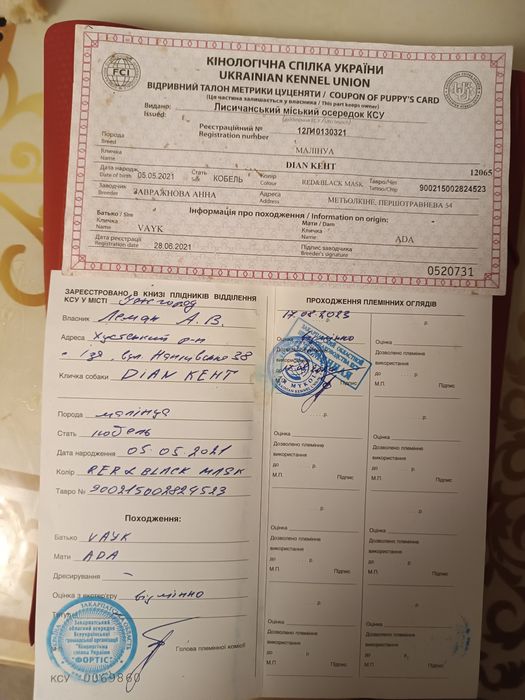 FCI
КІНОЛОГІЧНА СПІЛКА УКРАЇНИ
UKRAINIAN KENNEL UNION
ВІДРИВНИЙ ТАЛОН МЕТРИКИ ЦУЦЕНЯТИ / COUPON OF PUPPY'S CARD
(Ця частина залишається у власника / This part keeps owner)
Видано: Лисичанський міський осередок КСУ
Issued:
Реєстраційний № 12ЛМ0130321
Registration number
Порода МАЛІНУА
Breed
Кличка DIAN KENT 12065
Name
Дата народж. 05.05.2021 Стать КОБЕЛЬ Колір RED&BLACK MASK Тавро/Чип 900215002824523
Date of birth Sex Colour Tattoo/Chip
Заводчик ЗАВРАЖНОВА АННА Адреса МЕТЬОЛКІНЕ, ПЕРШОТРАВНЕВА 54
Breeder Address
Інформація про походження / Information on origin:
Батько / Sire Мати / Dam
Кличка VAYK Кличка ADA
Name Name
Дата реєстрації 28.06.2021 Підпис заводчика
Registration date Breeder's signature
0520731
ЗАРЕЄСТРОВАНО В КНИЗІ ПЛІДНИКІВ ВІДДІЛЕННЯ
КСУ У МІСТІ Ужгород
Власник Леман А.В.
Адреса Хустський р-н
Кличка собаки DIAN KENT
Порода малінуа
Стать кобель
Дата народження 05.05.2021
Колір RER&BLACK MASK
Тавро № 900215002824523
Походження:
Батько VAYK
Мати ADA
Дресирування –
Оцінка з екстер'єру відмінно
Титули
Голова племінної комісії
ЗАКАРПАТСЬКА ОБЛАСТЬ
Закарпатський
обласний осередок
Всеукраїнської
громадської організації
"Кінологічна
спілка України
ФОРТІС"
КСУ 0069860
ПРОХОДЖЕННЯ ПЛЕМІННИХ ОГЛЯДІВ
17.08.2023
Оцінка відмінно
Дозволено племінне
використання
до
М.П. Підпис
р.
Оцінка
Дозволено племінне
використання
до р.
М.П. Підпис
р.
Оцінка
Дозволено племінне
використання
до р.
М.П. Підпис
р.
Оцінка
Дозволено племінне
використання
до р.
М.П. Підпис
р.
Оцінка
Дозволено племінне
використання
до р.
М.П. Підпис
р.
Оцінка
Дозволено племінне
використання
до р.
М.П. Підпис
р.
Оцінка
Дозволено племінне
використання
до р.
М.П. Підпис
р.
Оцінка
Дозволено племінне
використання
до р.
М.П. Підпис